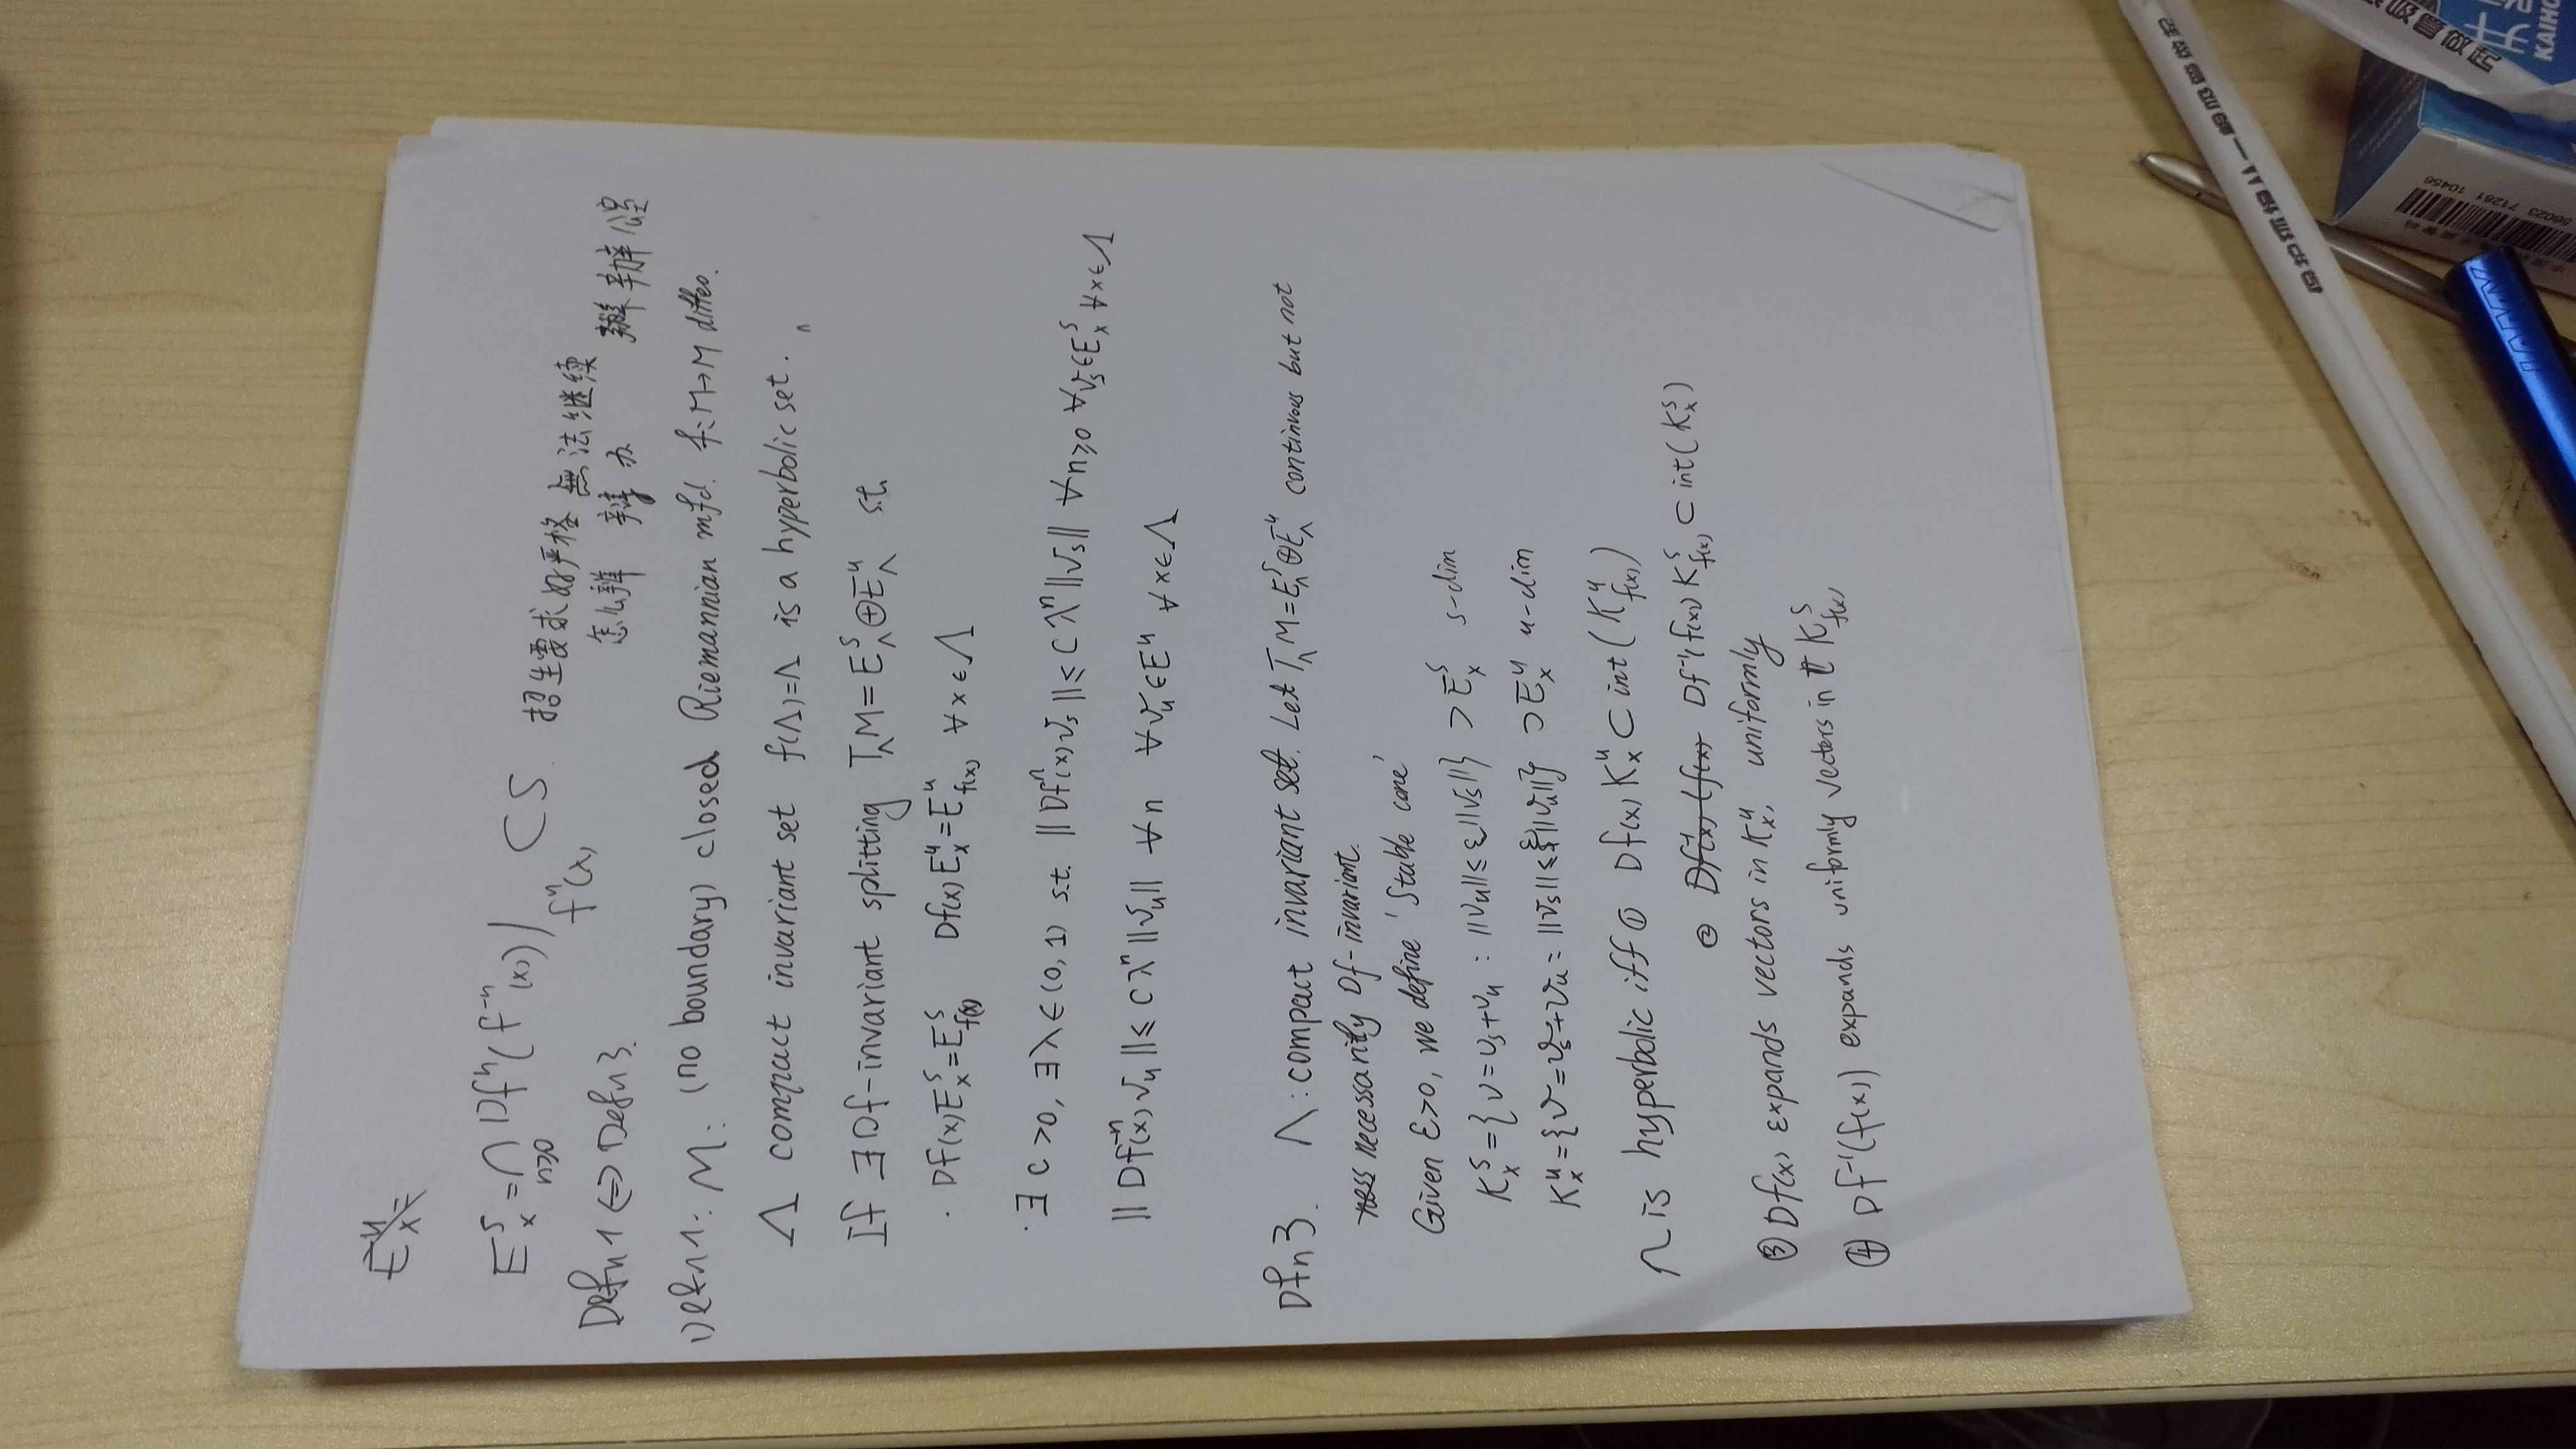 E^s_x = ∩_{n≥0} Df^n(f^{-n}(x))|_{f^n(x)} CS. 招生要求好严格 無法継续
Defn 1 ⇔ Defn 3. 怎么辦 办
Defn 1: M: (no boundary) closed Riemannian mfd. f: M→M diffeo.
Λ compact invariant set f(Λ)=Λ is a hyperbolic set.
If ∃ Df-invariant splitting T_ΛM = E^s_Λ ⊕ E^u_Λ s.t.
· Df(x)E^s_x = E^s_{f(x)} Df(x)E^u_x = E^u_{f(x)} ∀x∈Λ
· ∃ C>0, ∃λ∈(0,1) s.t. ||Df^n(x)v_s|| ≤ Cλ^n||v_s|| ∀n≥0 ∀v_s∈E^s_x ∀x∈Λ
||Df^{-n}(x)v_u|| ≤ Cλ^n||v_u|| ∀n ∀v_u∈E^u ∀x∈Λ
Dfn 3. Λ: compact invariant set. Let T_ΛM = E^s_Λ ⊕ E^u_Λ continuous but not
necessarity Df-invariant.
Given ε>0, we define 'Stable cone'
K^s_x = {v = v_s+v_u : ||v_u|| ≤ ε||v_s||} ⊃ E^s_x s-dim
K^u_x = {v = v_s+v_u = ||v_s|| ≤ ε||v_u||} ⊃ E^u_x u-dim
Λ is hyperbolic iff ① Df(x)K^u_x ⊂ int(K^u_{f(x)})
② Df^{-1}(f(x)) K^s_{f(x)} ⊂ int(K^s_x)
③ Df(x) expands vectors in K^u_x, uniformly
④ Df^{-1}(f(x)) expands uniformly vectors in K^s_{f(x)}
KAIHO
71261 10456